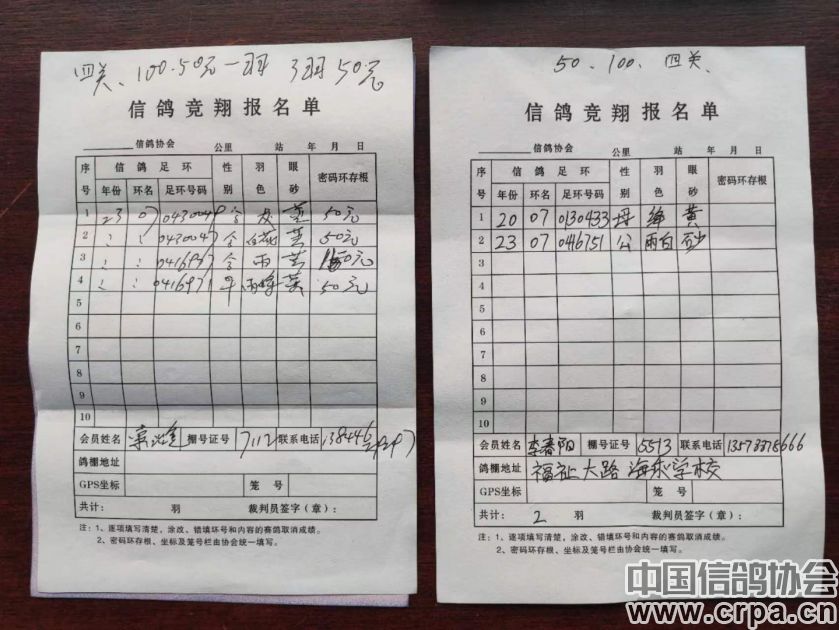 四关、100.50元一羽 3羽50元
信鸽竞翔报名单
信鸽协会 公里 站 年 月 日
序号 信鸽足环 性别 羽色 眼砂 密码环存根
年份 环名 足环号码
1 23 07 0430049 灰 黄 50元
2 〃 〃 黄 50元
3 〃 〃 雨 黄
4 〃 〃 0416971 黄 50元
5
6
7
8
9
10
会员姓名 棚号证号 7112 联系电话
鸽棚地址
GPS坐标 笼号
共计: 羽 裁判员签字(章):
注:1、逐项填写清楚,涂改、错填环号和内容的赛鸽取消成绩。
2、密码环存根、坐标及笼号栏由协会统一填写。
50.100. 四关、
信鸽竞翔报名单
信鸽协会 公里 站 年 月 日
序号 信鸽足环 性别 羽色 眼砂 密码环存根
年份 环名 足环号码
1 20 07 0130433 母 绛 黄
2 23 07 0416751 公 雨白 砂
3
4
5
6
7
8
9
10
会员姓名 李春阳 棚号证号 5513 联系电话 13578378666
鸽棚地址 福祉大路 海东学校
GPS坐标 笼号
共计: 2 羽 裁判员签字(章):
注:1、逐项填写清楚,涂改、错填环号和内容的赛鸽取消成绩。
2、密码环存根、坐标及笼号栏由协会统一填写。
中国信鸽协会
www.crpa.cn